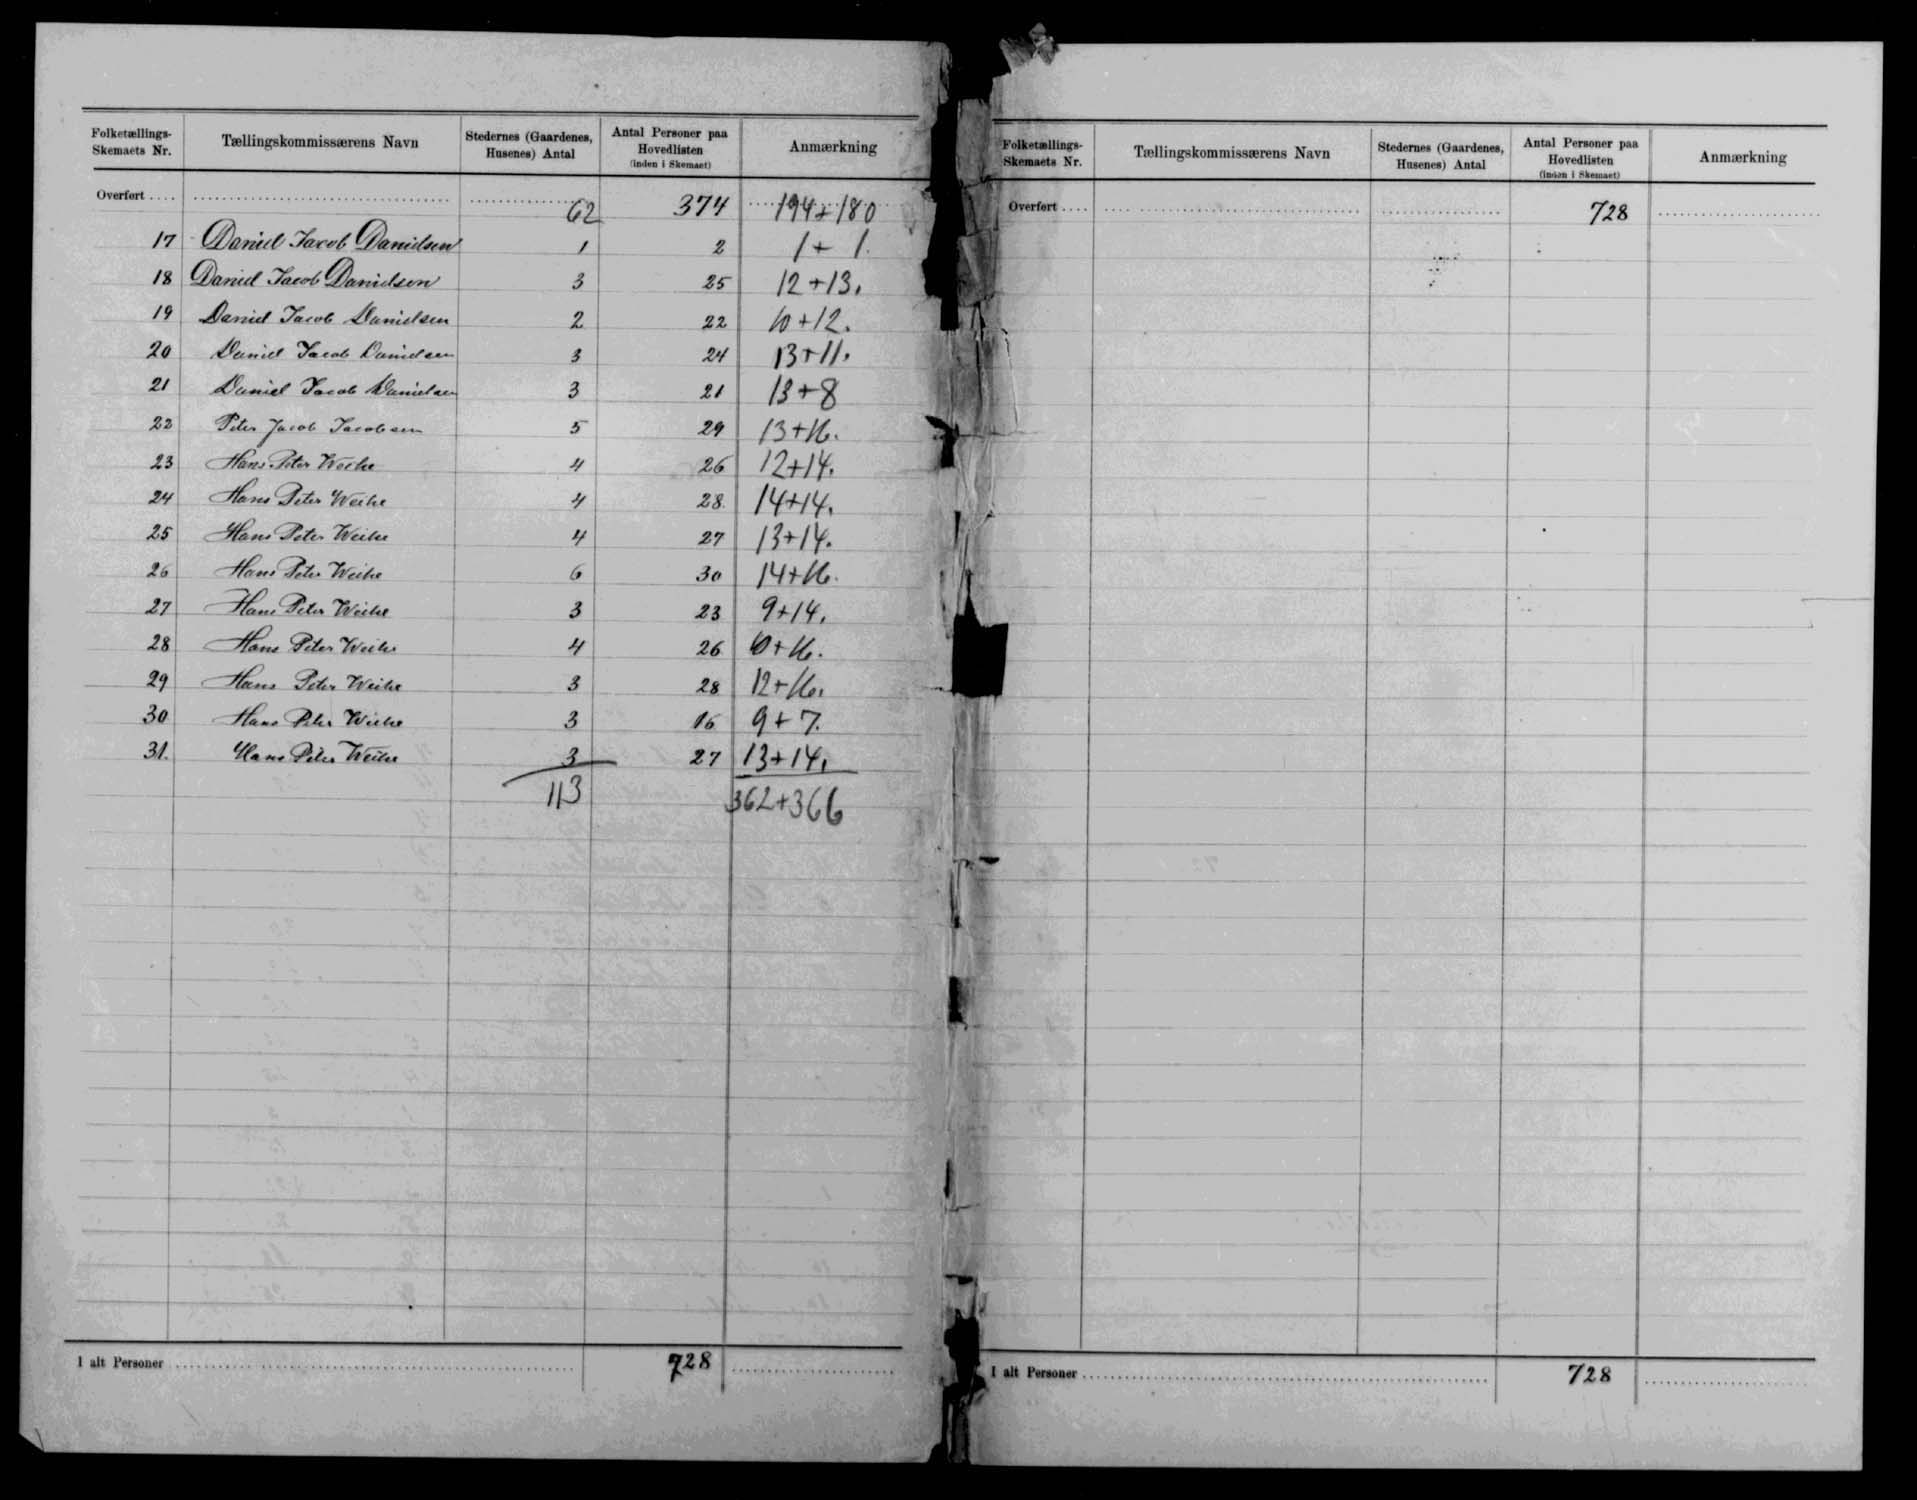 Folketællings-Skemaets Nr. Tællingskommissærens Navn Stedernes (Gaardenes, Husenes) Antal Antal Personer paa Hovedlisten (inden i Skemaet) Anmærkning
Overført .... 62 374 194+180
17 Daniel Jacob Danielsen 1 2 1+1.
18 Daniel Jacob Danielsen 3 25 12+13.
19 Daniel Jacob Danielsen 2 22 10+12.
20 Daniel Jacob Danielsen 3 24 13+11.
21 Daniel Jacob Danielsen 3 21 13+8
22 Peter Jacob Jacobsen 5 29 13+16.
23 Hans Peter Weihe 4 26 12+14.
24 Hans Peter Weihe 4 28. 14+14.
25 Hans Peter Weihe 4 27 13+14.
26 Hans Peter Weihe 6 30 14+16.
27 Hans Peter Weihe 3 23 9+14.
28 Hans Peter Weihe 4 26 10+16.
29 Hans Peter Weihe 3 28 12+16.
30 Hans Peter Weihe 3 16 9+7.
31. Hans Peter Weihe 3 27 13+14.
113 362+366
I alt Personer 728
Folketællings-Skemaets Nr. Tællingskommissærens Navn Stedernes (Gaardenes, Husenes) Antal Antal Personer paa Hovedlisten (inden i Skemaet) Anmærkning
Overført .... 728
I alt Personer 728